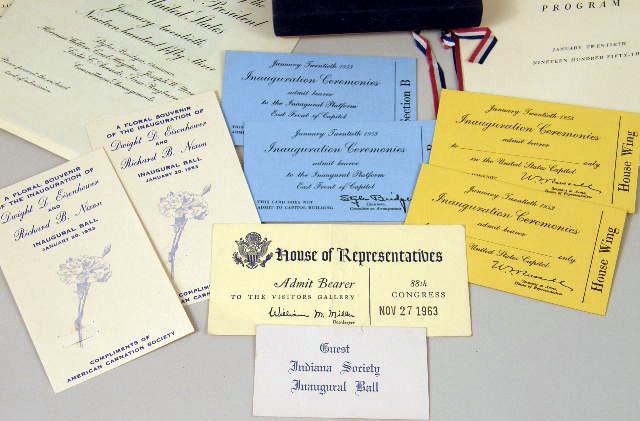 United States
January twentieth
Nineteen hundred fifty-three
PROGRAM
JANUARY TWENTIETH
January Twentieth 1953
Inauguration Ceremonies
admit bearer
to the Inaugural Platform
East Front of Capitol
Section B
January Twentieth 1953
Inauguration Ceremonies
admit bearer
to the Inaugural Platform
East Front of Capitol
THIS CARD DOES NOT
ADMIT TO CAPITOL BUILDING
January Twentieth 1953
Inauguration Ceremonies
admit bearer
to only
in the United States Capitol
House Wing
January Twentieth 1953
Inauguration Ceremonies
admit bearer
only
United States Capitol
House Wing
A FLORAL SOUVENIR
OF THE INAUGURATION OF
Dwight D. Eisenhower
and
Richard B. Nixon
INAUGURAL BALL
JANUARY 20, 1953
A FLORAL SOUVENIR
OF THE INAUGURATION OF
Dwight D. Eisenhower
and
Richard B. Nixon
INAUGURAL BALL
JANUARY 20, 1953
COMPLIMENTS OF
AMERICAN CARNATION SOCIETY
House of Representatives
Admit Bearer
TO THE VISITORS GALLERY
William M. Miller
Doorkeeper
88th
CONGRESS
NOV 27 1963
Guest
Indiana Society
Inaugural Ball